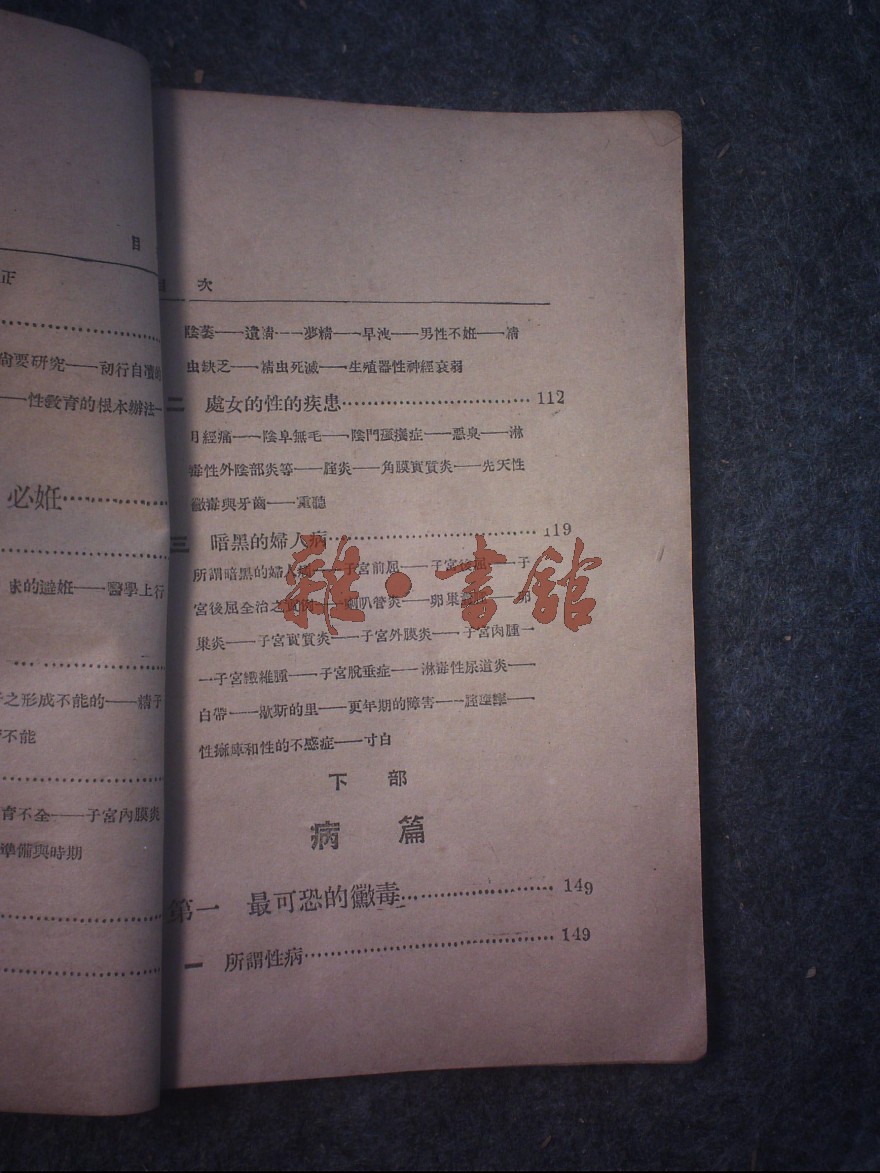 目
正
尙要研究——初行自瀆的
——性敎育的根本辦法—
必姙
求的避姙——醫學上行
之形成不能的——精子
不能
育不全——子宮內膜炎
準備與時期
目 次
陰萎——遺精——夢精——早洩——男性不姙——精
虫缺乏——精虫死滅——生殖器性神經衰弱
二 處女的性的疾患 112
月經痛——陰阜無毛——陰門瘙癢症——惡臭——淋
毒性外陰部炎等——腟炎——角膜實質炎——先天性
黴毒與牙齒——重聽
三 暗黑的婦人病 119
所謂暗黑的婦人病——子宮前屈——子宮後屈——子
宮後屈全治之實例——喇叭管炎——卵巢——卵
巢炎——子宮實質炎——子宮外膜炎——子宮肉腫—
—子宮纖維腫——子宮脫垂症——淋毒性尿道炎——
白帶——歇斯的里——更年期的障害——腟痙攣——
性的不感症——寸白
下 部
病 篇
第一 最可恐的黴毒 149
一 所謂性病 149
雜·書館